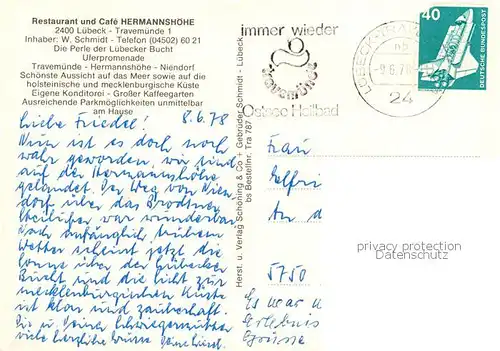 Restaurant und Café HERMANNSHÖHE
2400 Lübeck - Travemünde 1
Inhaber: W. Schmidt - Telefon (04502) 60 21
Die Perle der Lübecker Bucht
Uferpromenade
Travemünde - Hermannshöhe - Niendorf
Schönste Aussicht auf das Meer sowie auf die
holsteinische und mecklenburgische Küste
Eigene Konditorei - Großer Kaffeegarten
Ausreichende Parkmöglichkeiten unmittelbar
am Hause
Liebe Friedel! 8.6.78
Nun ist es doch noch
wahr geworden, wir sind
auf der Hermannshöhe
gelandet. Der Weg von Nien
dorf über das Brodtner
Steilufer war wunderbar
Nach anfänglich trübem
Wetter scheint jetzt die
Sonne über der Lübecker
Bucht und die Sicht zur
mecklenburgischen Küste
ist klar und zauberhaft.
Dir u. Deiner Schwiegermutter
viele herzliche Grüsse Deine
Herst. u. Verlag Schöning & Co + Gebrüder Schmidt - Lübeck
bs Bestellnr. Tra 787
immer wieder
Travemünde
Ostsee Heilbad
LÜBECK-TRAV
-9.6.78
24
40
DEUTSCHE BUNDESPOST
Frau
Elfri
An d
5750
Es war u
Erlebnis
Grüsse
Privacy protection
Datenschutz